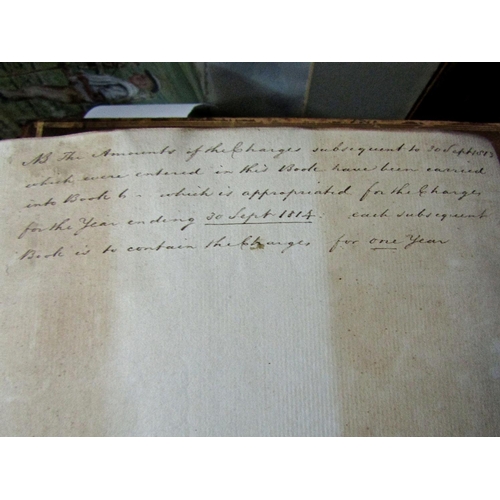 NB The Amounts of the Charges subsequent to 30 Sept 1813
which were entered in this Book have been carried
into Book 6 - which is appropriated for the Charges
for the Year ending 30 Sept 1814: each subsequent
Book is to contain the Charges for one Year